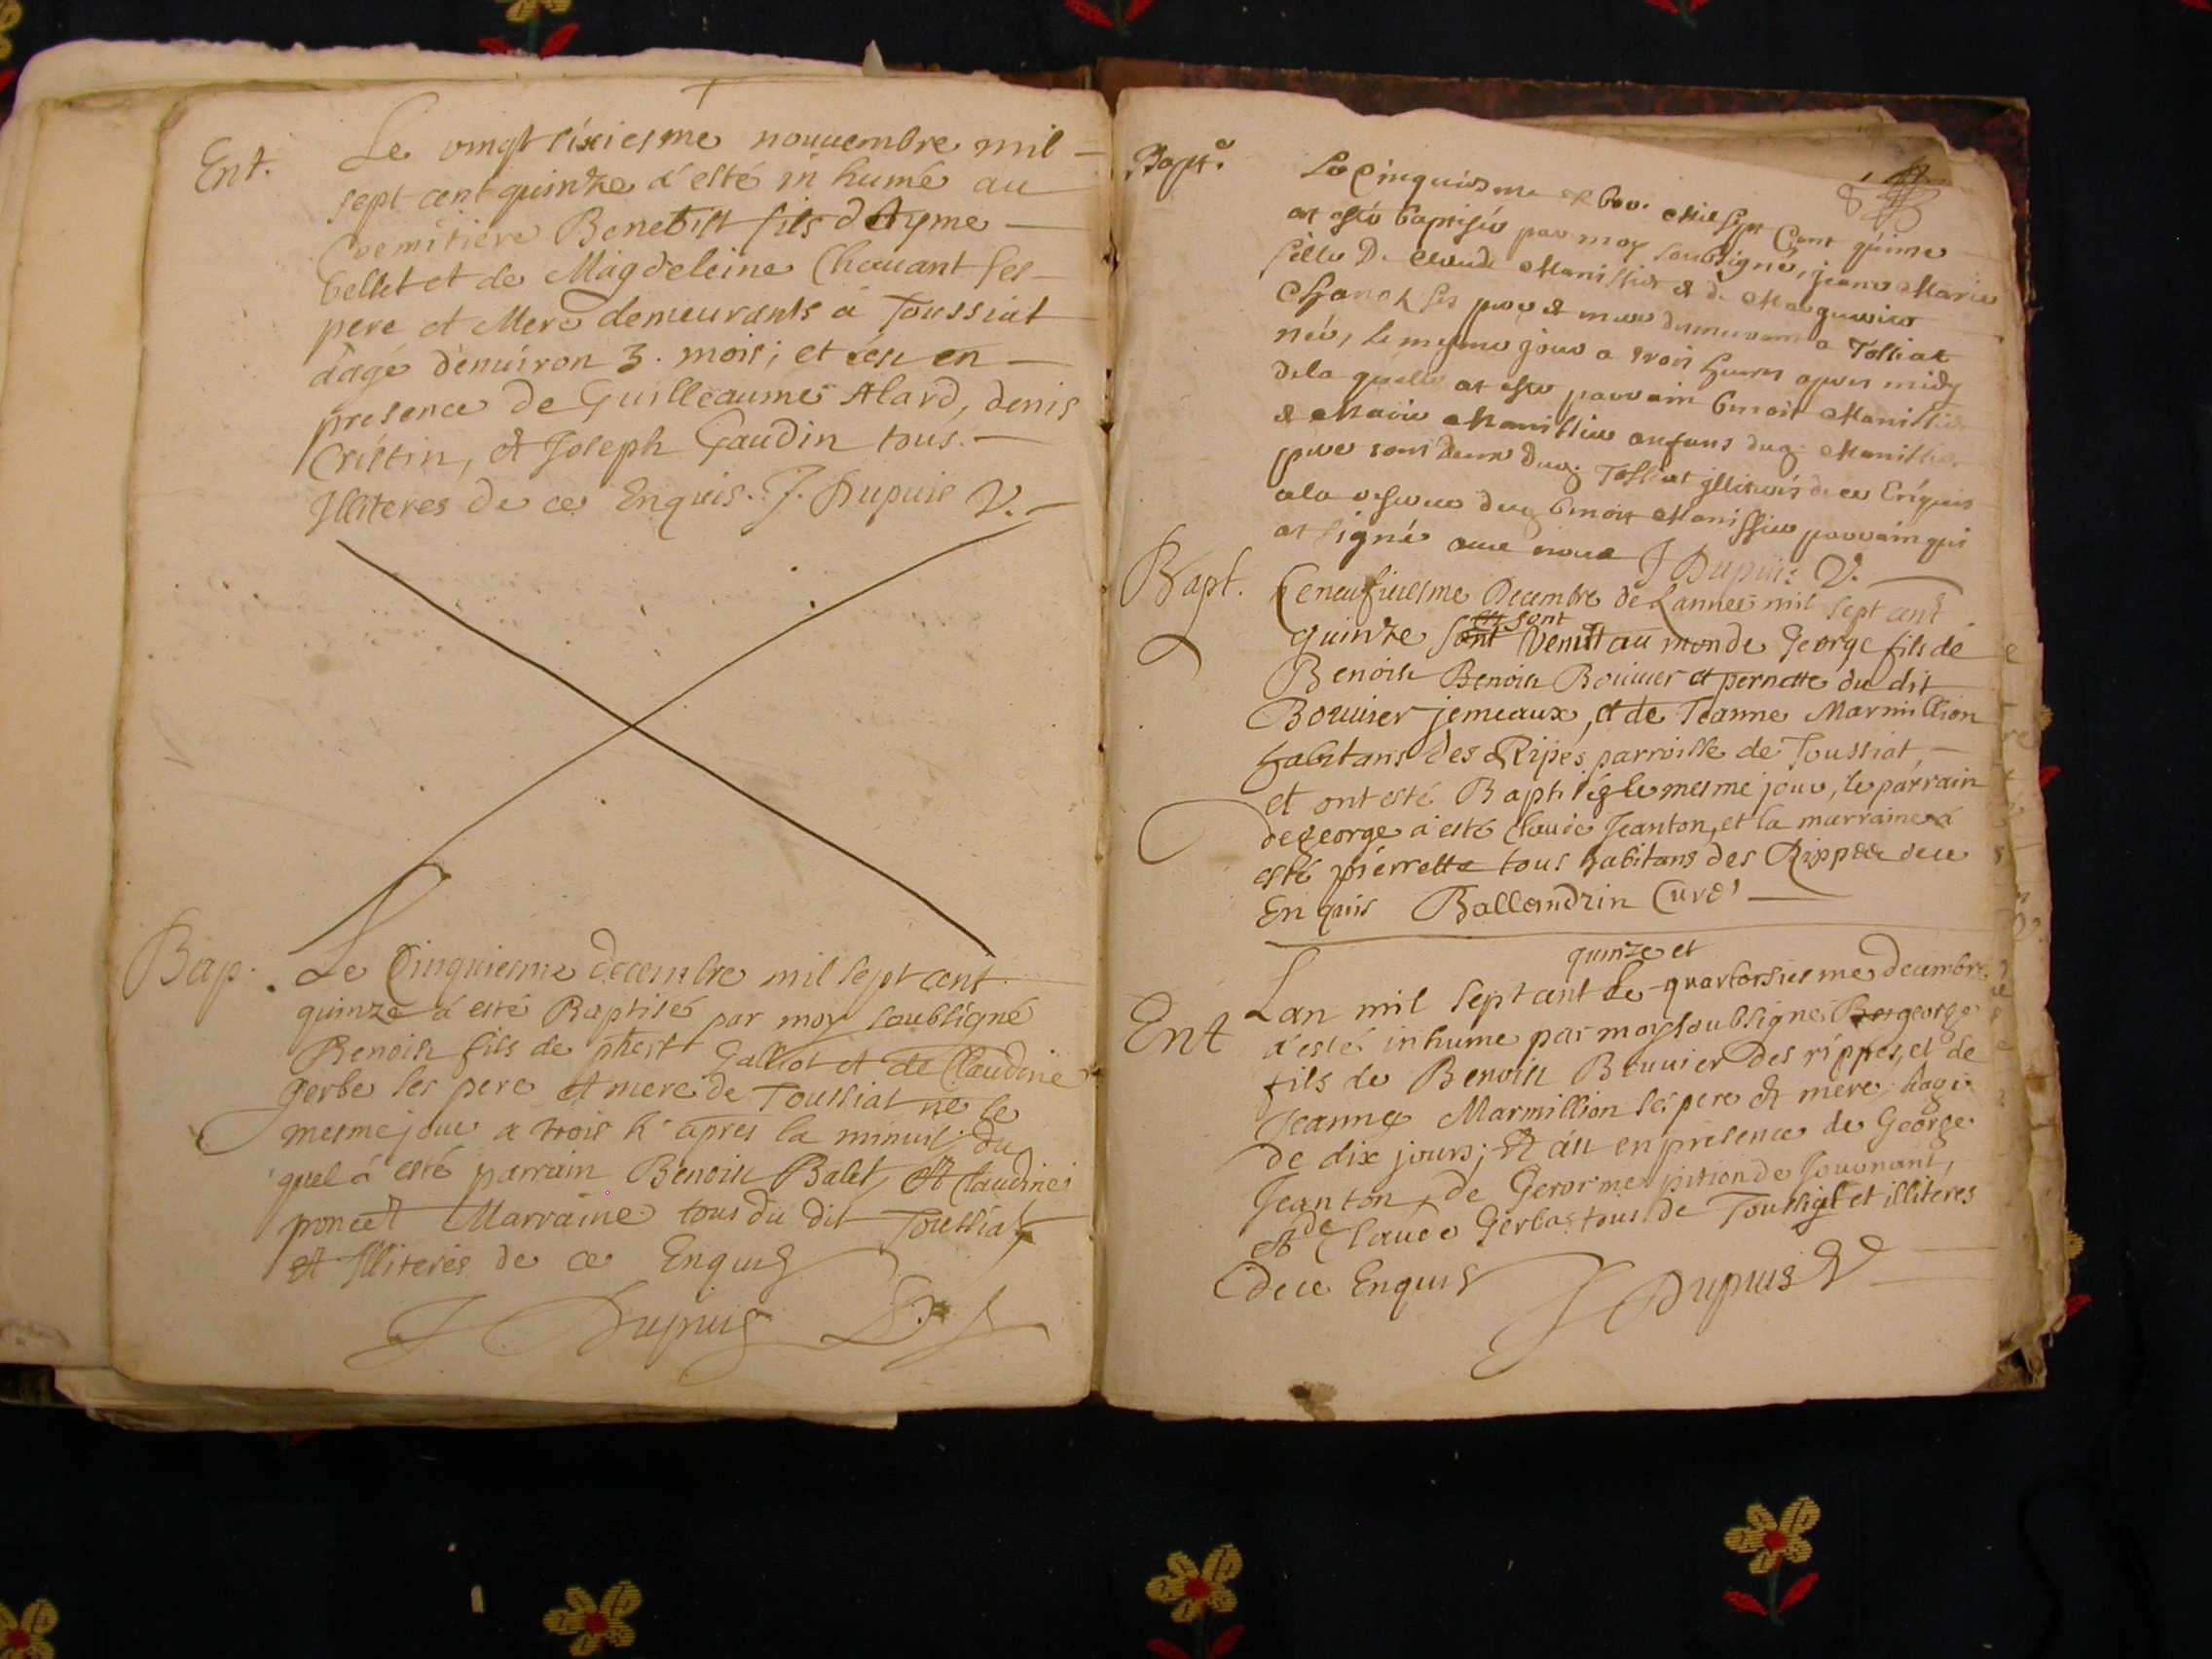 Ent.
Le vingt sixiesme nouuembre mil
sept cent quinze a esté in humé au
Coemitiere Benoist fils d'Ayme
bellet et de Magdeleine Chauant ses
pere et Mere demeurants à Toussiat
d'agé d'enuiron 3. mois; et ce en
presence de Guilleaume Alard, denis
Cristin, et Joseph Gaudin tous.
Illiteres de ce Enquis. J. Dupuis V.
Bap.
Le Cinquiesme decembre mil sept cent
quinze a esté Baptisé par moy soubsigné
Benoist fils de Galliot et de Claudine
gerbe ses pere et mere de Toussiat né le
mesme jour a trois h. apres la minuit, du
quel a esté parrain Benoist Balet, et Claudine
poncet Marraine tous du dit Toussiat
et Illiteres de ce Enquis
J Dupuis
8
Bapt.
Le Cinquiesme Xbre. Mil Sept Cent quinze
at esté baptisée par moy soubsigné, jeane Marie
fille De Claude Manissier et de Marguerite
ses pere et mere demeurant a Tossiat
née, le mesme jour a trois heures apres midy
de la quelle at esté parrain benoit Manissier
et Marie Manissier enfans dud. Manissier
pere tous deux dud. Tossiat illiterés de ce Enquis
a la reserue dud benoit Manissier parrain qui
at signé auec nous J Dupuis V.
Bapt.
Le neufuiesme Decembre de Lannee mil sept cent
en sont
quinze sont venust au monde George fils de
Benoist Benoist Bouuier et pernette du dit
Bouuier jemeaux, et de Jeanne Marmillion
habitans des Ripes parroisse de Toussiat,
et ont esté Baptisés le mesme jour, le parrain
de george a esté Claude Jeanton, et la marraine a
esté pierrette tous habitans des Rippes de ce
Enquis Ballandrin Curé
quinze et
Lan mil sept cent le quartorsiesme decembre
Ent
a esté inhume par moy soubsigné Be george
fils de Benoist Bouuier des rippes, et de
Jeanne Marmillion ses pere et mere, hagé
de dix jours; et ce en presence de George
Jeanton, de Gerorme pition de Jouonant,
et de Claude Gerbas tous de Toussiat et illiteres
de ce Enquis J Dupuis V